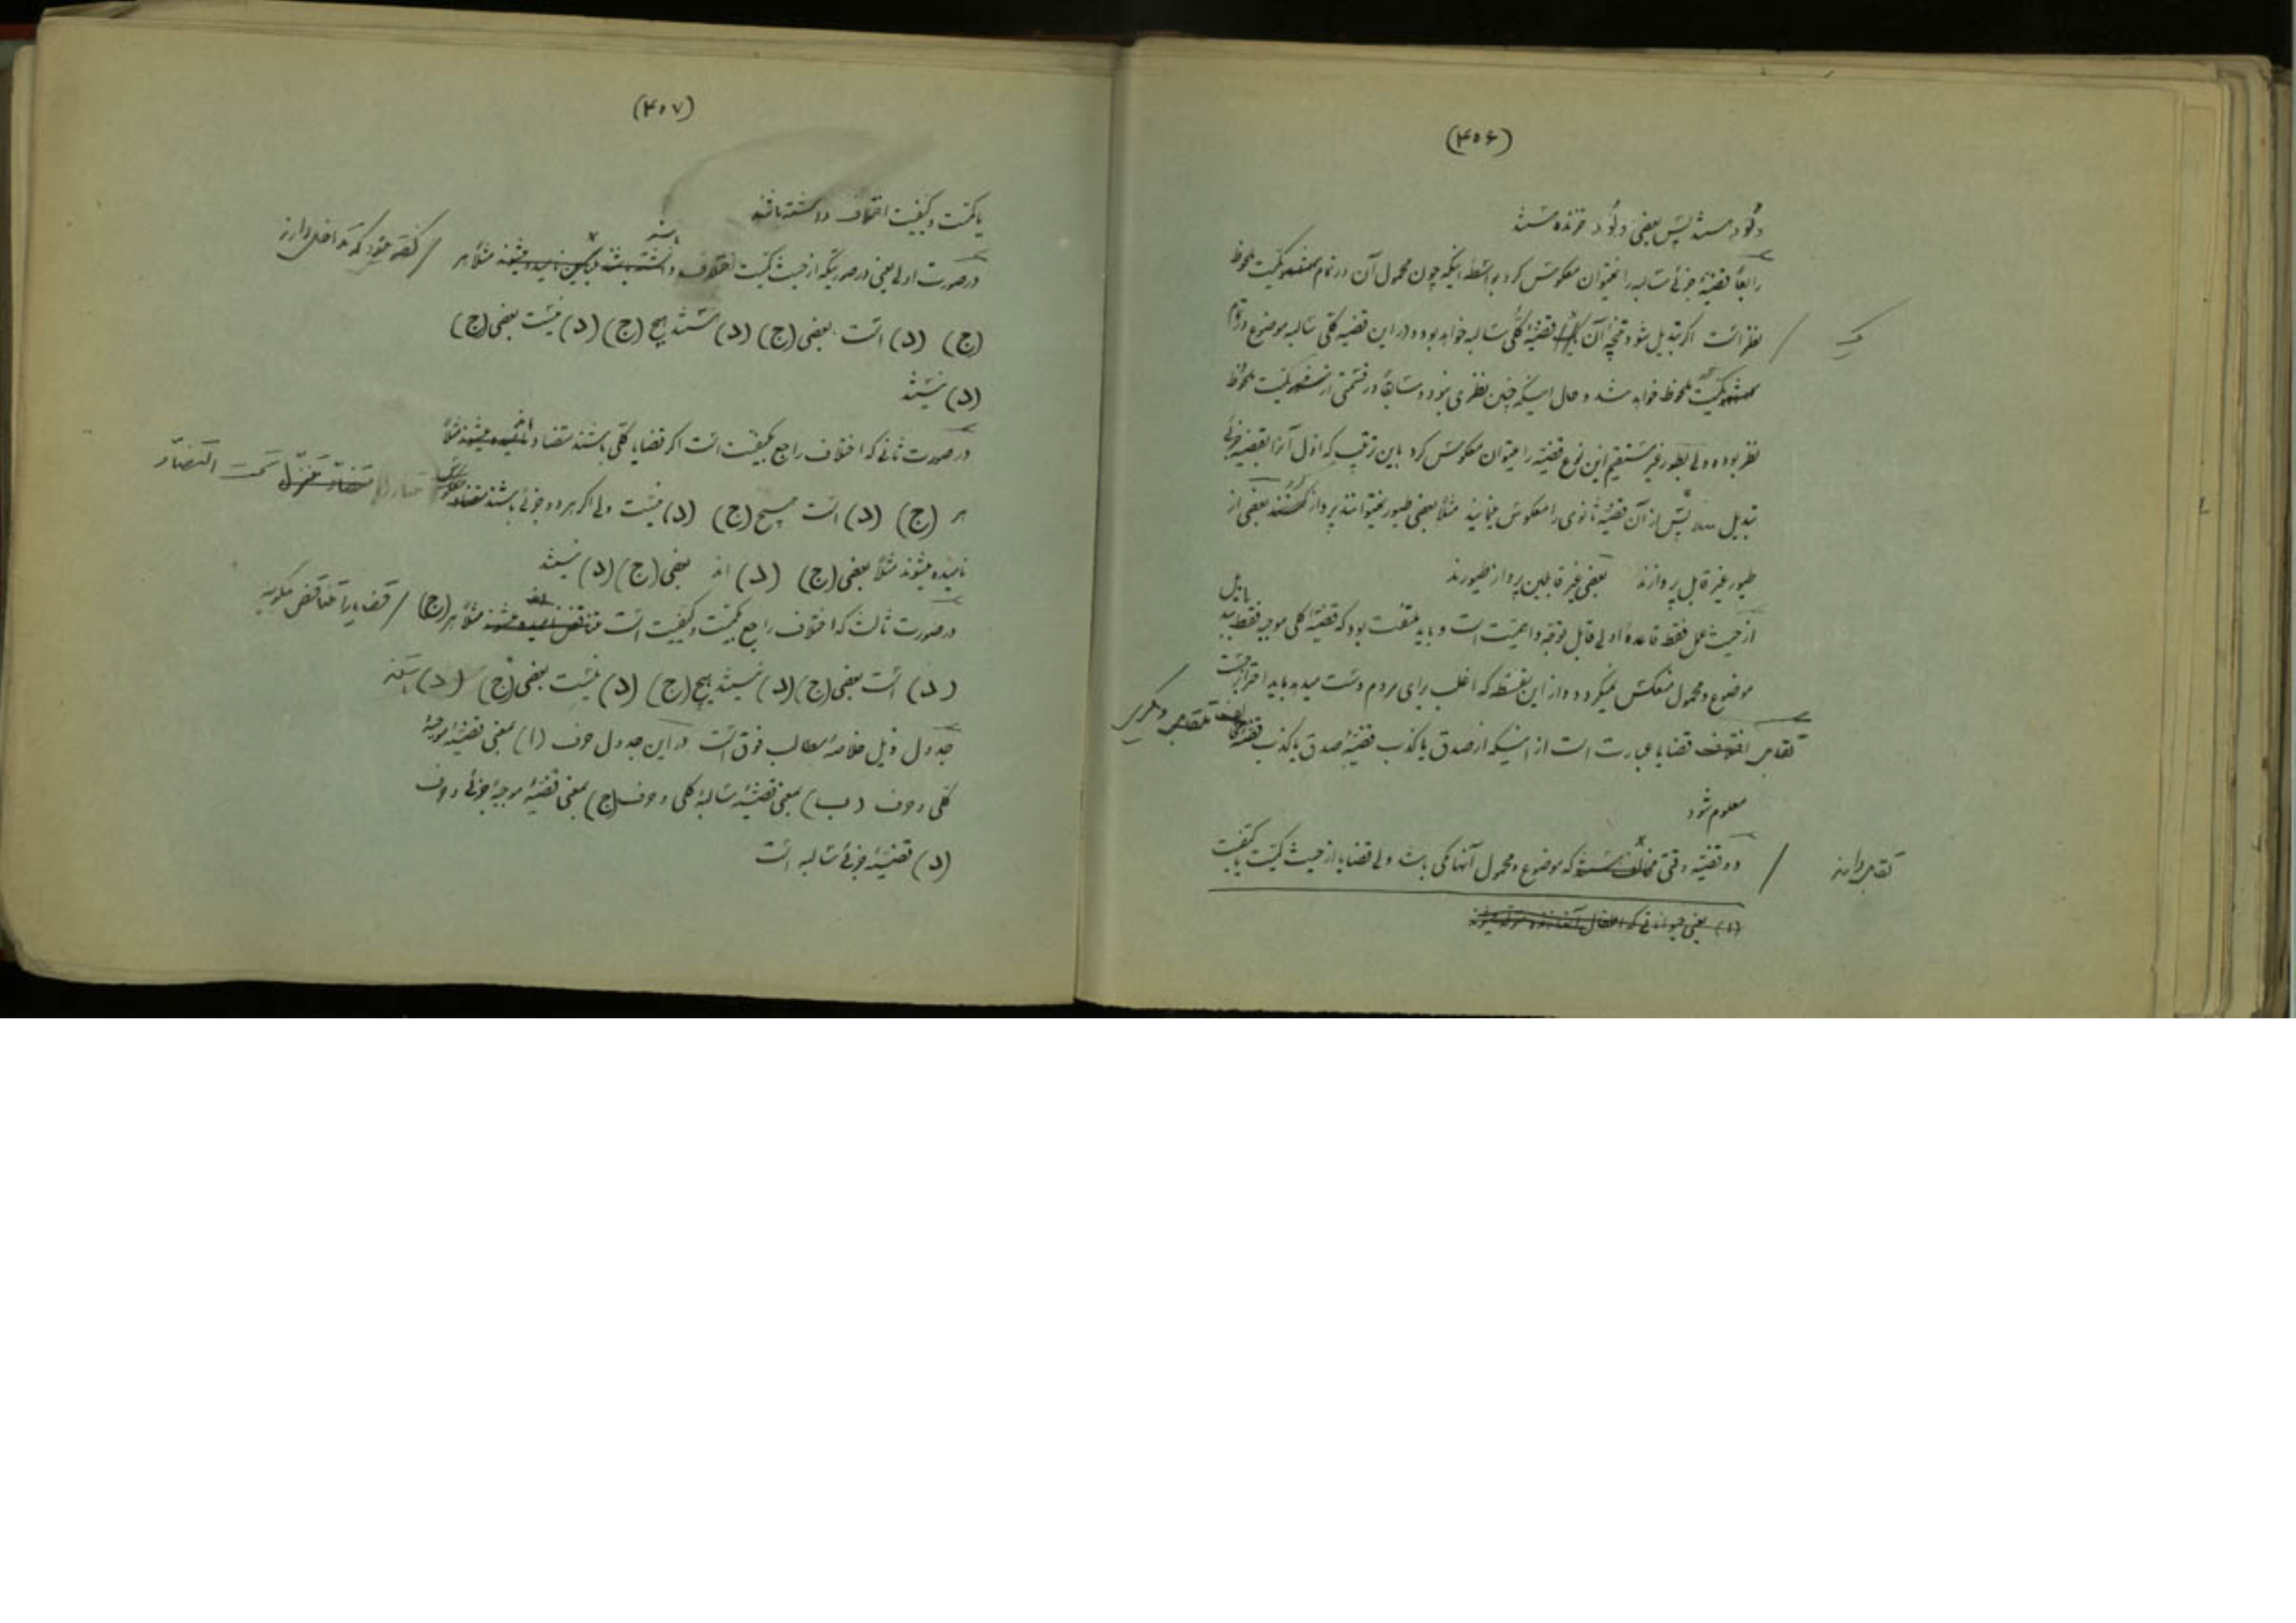 (۴۵۶)
ولود هستند پس بعضی ولود خزنده هستند
رابعاً قضیهٔ جزئی سالبه را نمیتوان معکوس کرد بواسطه اینکه چون محمول آن در تمام کمیت ملحوظ
نظر است اگر تبدیل شود نتیجه آن قضیهٔ کلی سالبه خواهد بود و در این قضیه کلی سالبه موضوع در تمام
کمیت ملحوظ خواهد شد و حال اینکه چنین نظری نبوده و سابقاً در قسمتی از کمیت ملحوظ
نظر بوده ولی بطور غیر مستقیم این نوع قضیه را میتوان معکوس کرد باین ترتیب که اول آنرا بقضیه جزئی
تبدیل پس از آن قضیهٔ ثانوی را معکوس مینمایند مثلاً بعضی طیور نمیتوانند پرواز کنند بعضی از
طیور غیر قابل پروازند بعضی غیر قابلین پرواز طیورند
از حیث عمل فقط قاعدهٔ اولی قابل توجه و اهمیت است و باید ملتفت بود که قضیهٔ کلی موجبه فقط با تبدیل
موضوع و محمول منعکس نمیگردد و از این سفسطه که اغلب برای مردم دست میدهد باید احتراز جست
تقابل قضایا عبارت است از اینکه از صدق یا کذب قضیهٔ صدق یا کذب قضیهٔ دیگری
معلوم شود
دو قضیه وقتی تقابل دارند که موضوع و محمول آنها یکی باشد ولی قضایا از حیث کمیت یا کیفیت
(۱) یعنی حیواناتی که اطفال آنها زنده متولد میشوند
(۴۵۷)
یا کمیت و کیفیت اختلاف داشته باشند
در صورت اولی یعنی در صورتیکه از حیث کمیت اختلاف باشد گفته میشود که تداخل دارند مثلاً هر
(ج) (د) است بعضی (ج) (د) هستند هیچ (ج) (د) نیست بعضی (ج)
(د) نیستند
در صورت ثانی که اختلاف راجع بکیفیت است اگر قضایا کلی باشند متضاد مثلاً
هر (ج) (د) است هیچ (ج) (د) نیست ولی اگر هر دو جزئی باشند تحت التضاد
نامیده میشوند مثلاً بعضی (ج) (د) اند بعضی (ج) (د) نیستند
در صورت ثالث که اختلاف راجع بکمیت و کیفیت است قضایا را متناقض میگویند مثلاً هر (ج)
(د) است بعضی (ج) (د) نیستند هیچ (ج) (د) نیست بعضی (ج) (د) هستند
جدول ذیل خلاصهٔ مطالب فوق است در این جدول حرف (۱) بمعنی قضیهٔ موجبهٔ
کلی و حرف (ب) بمعنی قضیهٔ سالبهٔ کلی و حرف (ج) بمعنی قضیهٔ موجبهٔ جزئی و حرف
(د) قضیهٔ جزئی سالبه است